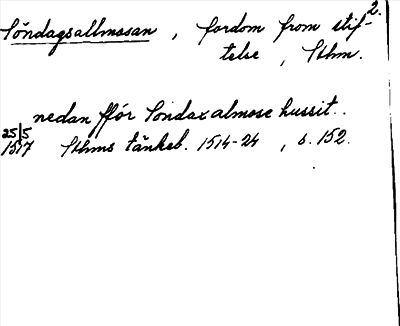 2.
Söndagsallmosan, fordom from stif-
telse, Sthm.
nedan ffór Sondaxalmose hussit..
25/5
1517 Sthms tänkeb. 1514-24, s. 152.